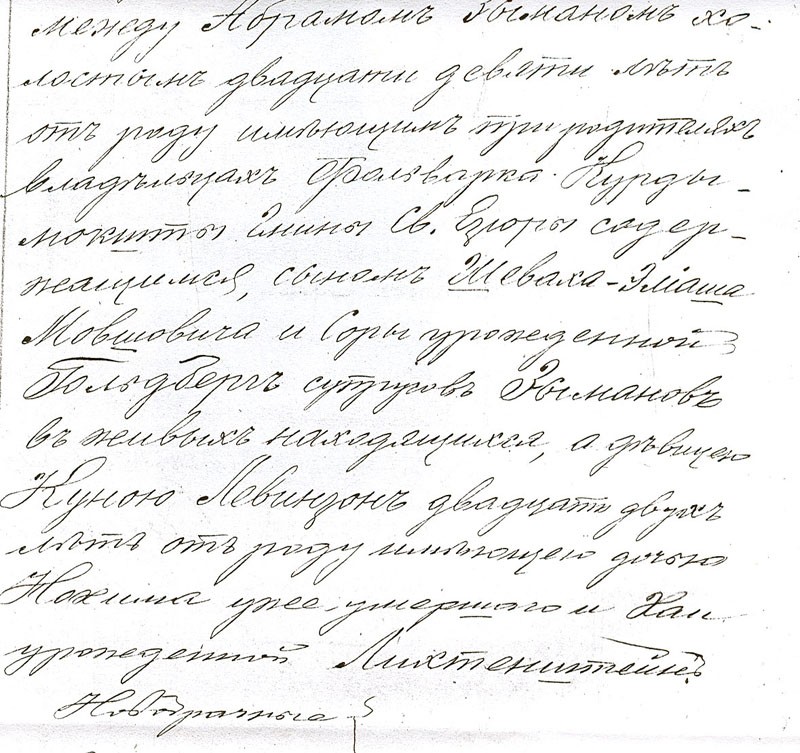 между Абрамомъ Зыманомъ хо-
лостымъ двадцати девяти лѣтъ
отъ роду имѣющимъ при родителяхъ
владѣльцахъ Фольварка Курды-
мокшты Гмины Св. Езiоры содер-
жащимся, сыномъ Шеваха-Эліаша
Мовшовича и Соры урожденной
Гольдбергъ супруговъ Зымановъ
въ живыхъ находящихся, а дѣвицею
Куною Левинзонъ двадцати двухъ
лѣтъ отъ роду имѣющею дочью
Нохима уже умершаго и Хаи
урожденной Лихтенштейнъ
Новобрачные